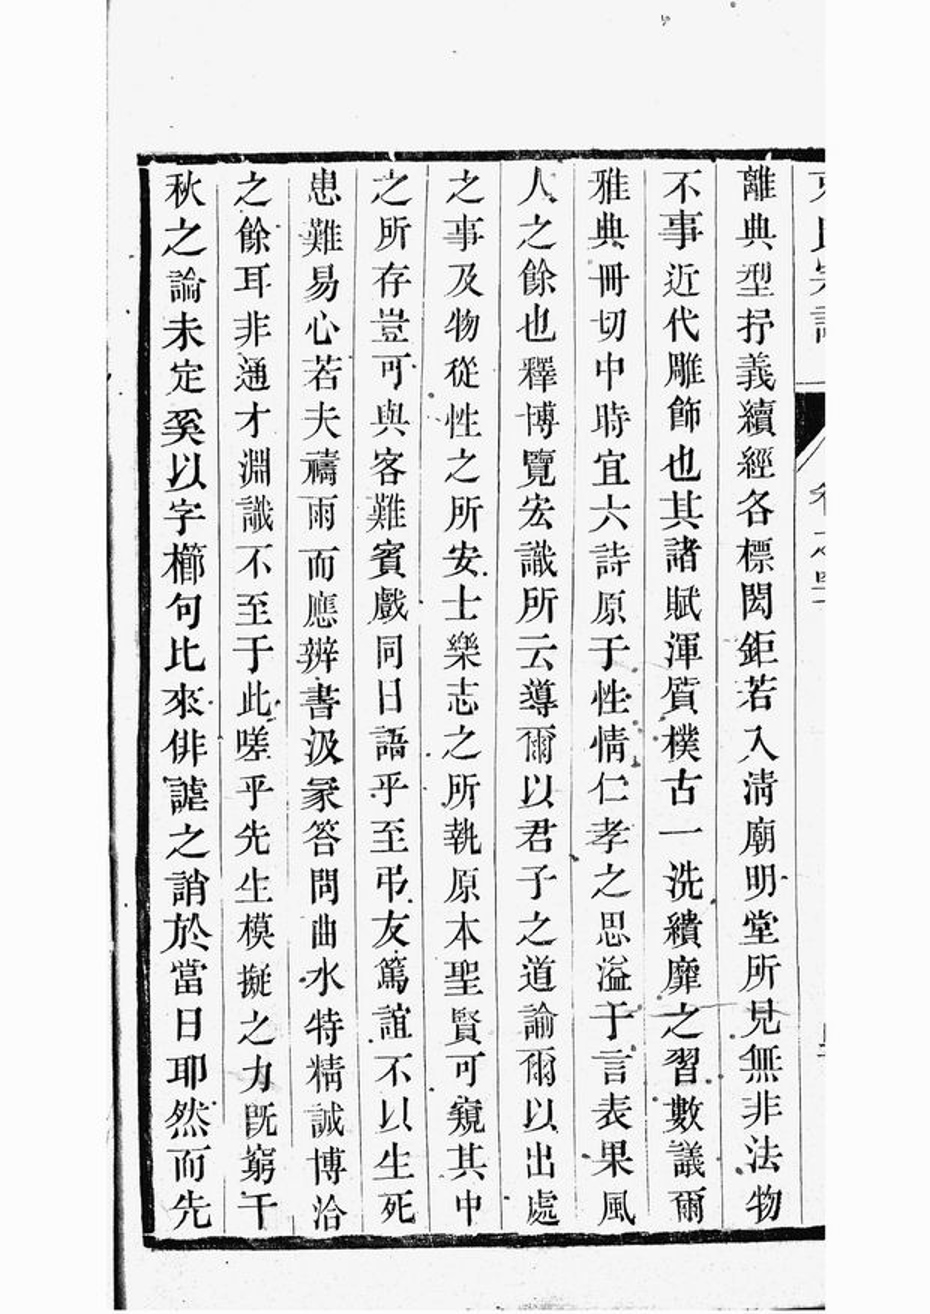 離典型抒義續經各標閎鉅若入淸廟明堂所見無非法物
不事近代雕飾也其諸賦渾質樸古一洗繢靡之習數議爾
雅典冊切中時宜六詩原于性情仁孝之思溢于言表果風
人之餘也釋博覽宏識所云導爾以君子之道論爾以出處
之事及物從性之所安士樂志之所執原本聖賢可窺其中
之所存豈可與客難賓戲同日語乎至弔友篤誼不以生死
患難易心若夫禱雨而應辨書汲冢答問曲水特精誠博洽
之餘耳非通才淵識不至于此嗟乎先生模擬之力旣窮千
秋之論未定奚以字櫛句比來俳謔之誚於當日耶然而先